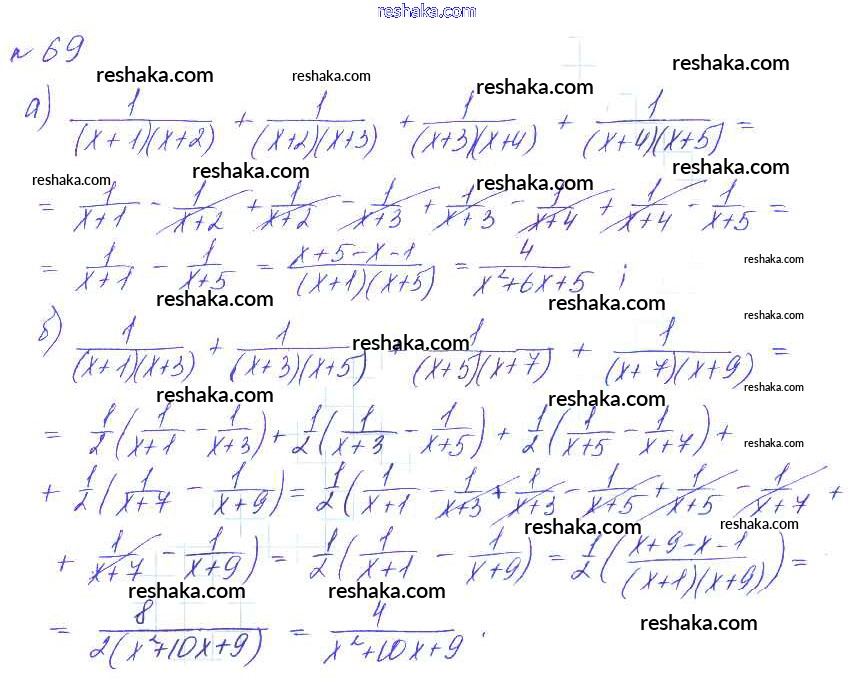 reshaka.com
№ 69
reshaka.com reshaka.com reshaka.com
reshaka.com
а) 1/((x+1)(x+2)) + 1/((x+2)(x+3)) + 1/((x+3)(x+4)) + 1/((x+4)(x+5)) =
reshaka.com reshaka.com reshaka.com reshaka.com reshaka.com
= 1/(x+1) - 1/(x+2) + 1/(x+2) - 1/(x+3) + 1/(x+3) - 1/(x+4) + 1/(x+4) - 1/(x+5) =
reshaka.com
= 1/(x+1) - 1/(x+5) = (x+5-x-1)/((x+1)(x+5)) = 4/(x²+6x+5) ;
reshaka.com
reshaka.com reshaka.com reshaka.com
б) 1/((x+1)(x+3)) + 1/((x+3)(x+5)) + 1/((x+5)(x+7)) + 1/((x+7)(x+9)) =
reshaka.com
reshaka.com reshaka.com reshaka.com
= 1/2(1/(x+1) - 1/(x+3)) + 1/2(1/(x+3) - 1/(x+5)) + 1/2(1/(x+5) - 1/(x+7)) +
reshaka.com
+ 1/2(1/(x+7) - 1/(x+9)) = 1/2(1/(x+1) - 1/(x+3) + 1/(x+3) - 1/(x+5) + 1/(x+5) - 1/(x+7) +
reshaka.com reshaka.com
+ 1/(x+7) - 1/(x+9)) = 1/2(1/(x+1) - 1/(x+9)) = 1/2((x+9-x-1)/((x+1)(x+9))) =
reshaka.com reshaka.com
= 8/(2(x²+10x+9)) = 4/(x²+10x+9) .
reshaka.com